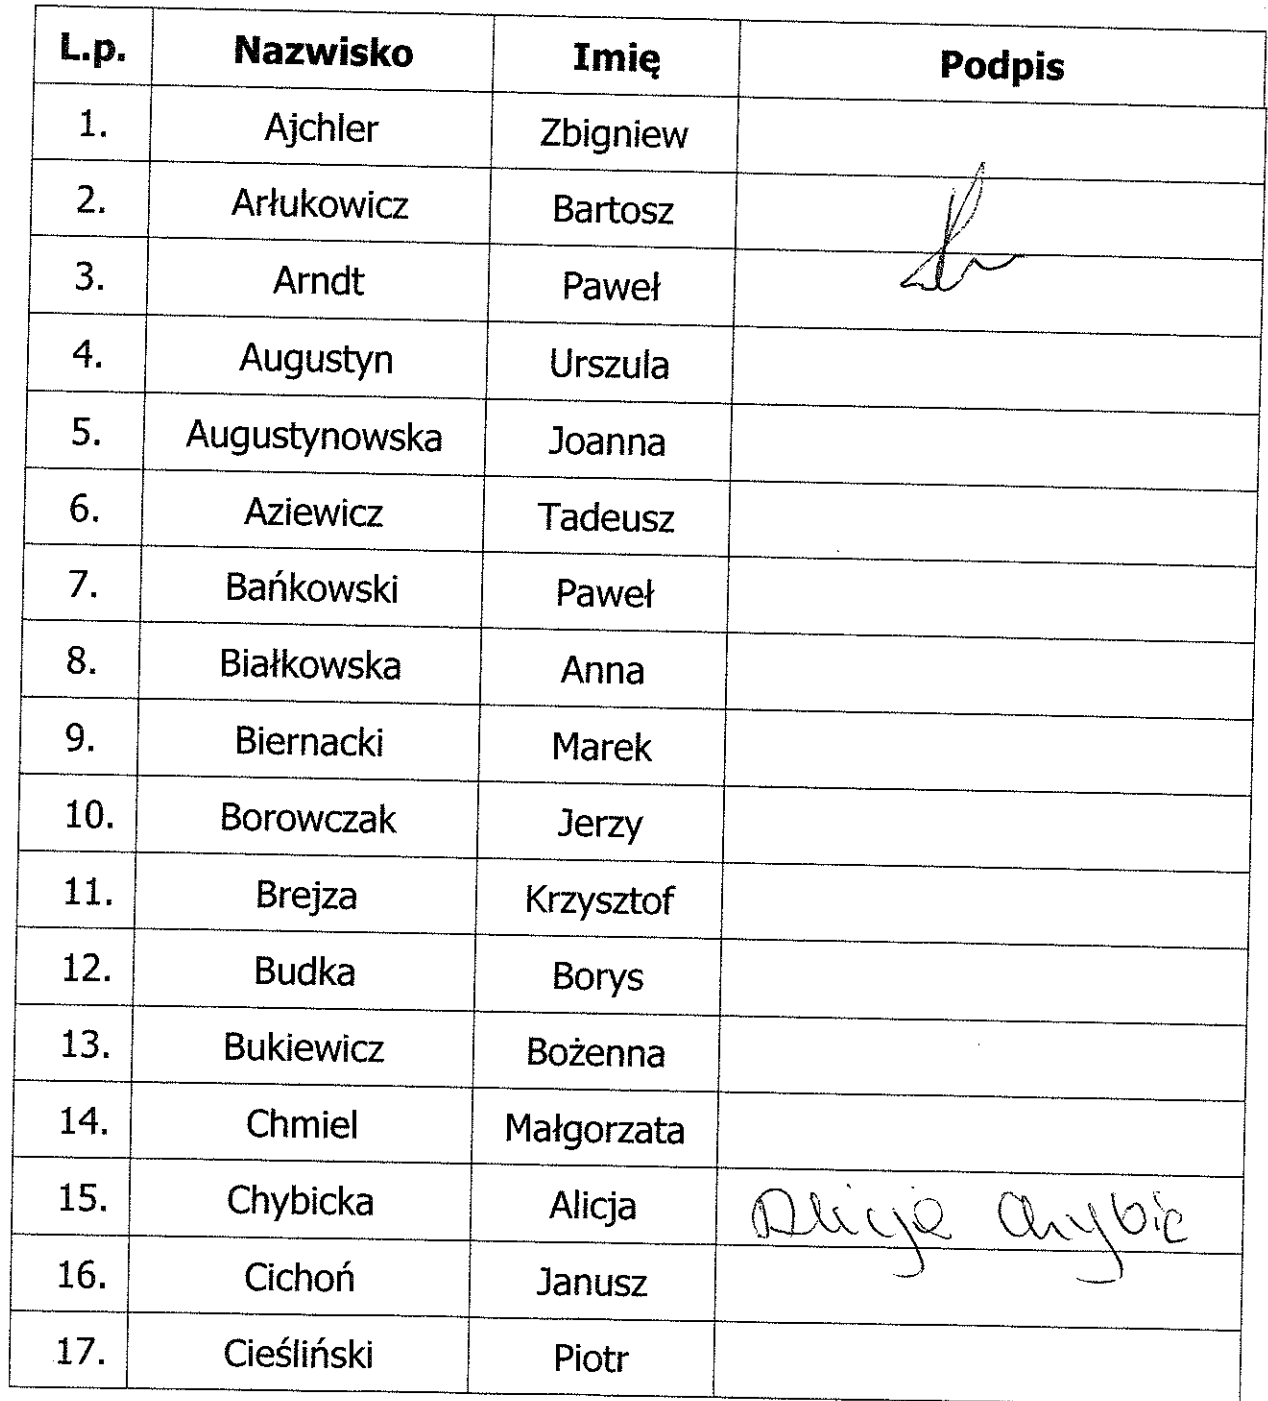 L.p. Nazwisko Imię Podpis
1. Ajchler Zbigniew
2. Arłukowicz Bartosz
3. Arndt Paweł
4. Augustyn Urszula
5. Augustynowska Joanna
6. Aziewicz Tadeusz
7. Bańkowski Paweł
8. Białkowska Anna
9. Biernacki Marek
10. Borowczak Jerzy
11. Brejza Krzysztof
12. Budka Borys
13. Bukiewicz Bożenna
14. Chmiel Małgorzata
15. Chybicka Alicja Alicja Chybic
16. Cichoń Janusz
17. Cieśliński Piotr